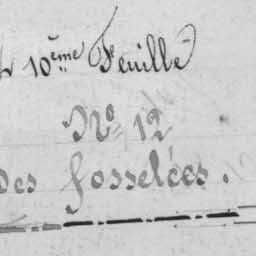 10ème Feuille
Nº 12
des fosselées.